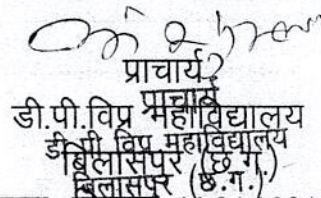 प्राचार्य
प्राचार्य
डी.पी.विप्र महाविद्यालय
डी.पी.विप्र महाविद्यालय
बिलासपुर (छ.ग.)
बिलासपुर (छ.ग.)